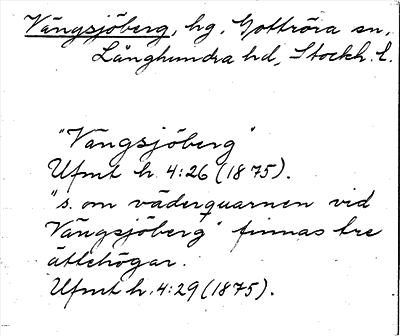 Vängsjöberg, hg, Gottröra sn,
Långhundra hd, Stockh. l.
"Vängsjöberg"
Ufmt h. 4:26 (1875).
"s. om väderquarnen vid
Vängsjöberg" finnas tre
ättehögar.
Ufmt h. 4:29 (1875).